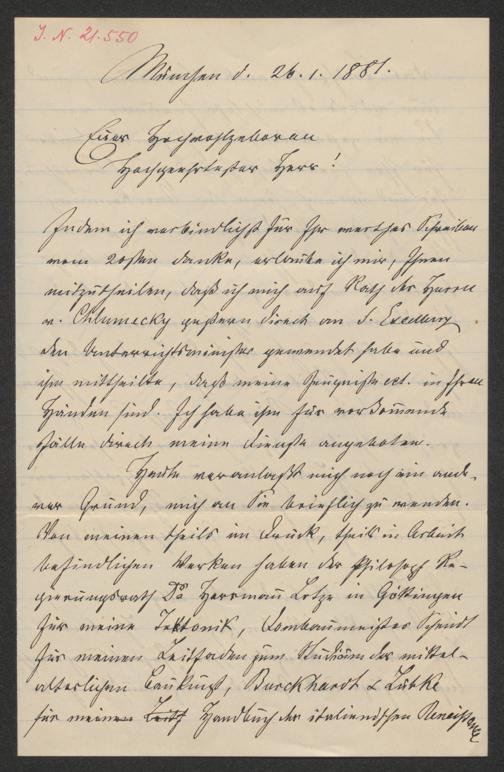 I. N. 21.550
München d. 26.1.1881.
Euer Hochwohlgeboren
Hochgeehrtester Herr!
Indem ich verbindlichst für Ihr werthes Schreiben
vom 20sten danke, erlaube ich mir, Ihnen
mitzutheilen, daß ich mich auf Rath des Herrn
v. Chlumecky gestern direct an S. Excellenz
den Unterrichtsminister gewendet habe und
ihm mittheilte, daß meine Zeugnisse ect. in Ihren
Händen sind. Ich habe ihm für vorkommende
Fälle direct meine Dienste angeboten.
Heute veranlaßt mich noch ein ande-
rer Grund, mich an Sie brieflich zu wenden.
Von meinen theils im Druck, theils in Arbeit
befindlichen Werken haben der Philosoph Re-
gierungsrath Dr Herrmann Lotze in Göttingen
für meine Tektonik, Dombaumeister Schmidt
für meinen Leitfaden zum Studium der mittel-
alterlichen Baukunst, Burckhardt & Lübke
für mein Handbuch der italienischen Renaissance